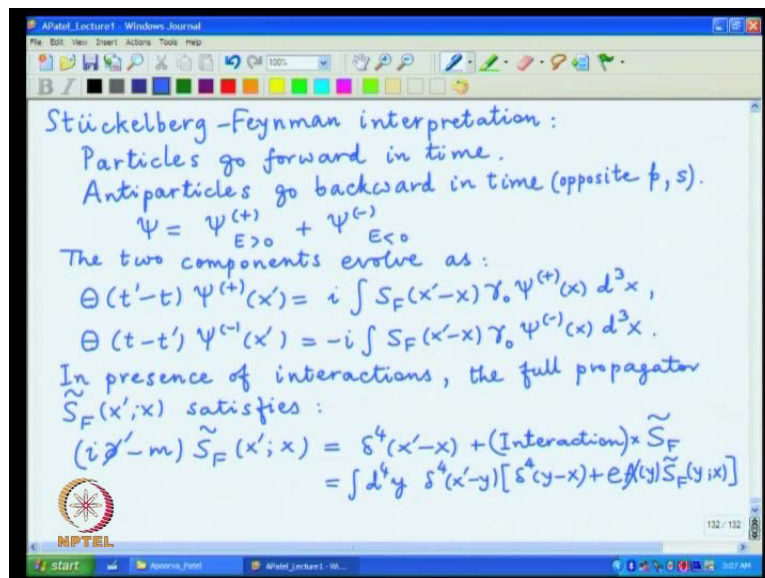 APatel_Lecture1 - Windows Journal
File Edit View Insert Actions Tools Help
100%
B I
Stückelberg-Feynman interpretation:
Particles go forward in time.
Antiparticles go backward in time (opposite p, s).
Ψ = Ψ^(+)_{E>0} + Ψ^(-)_{E<0}
The two components evolve as:
Θ(t'-t) Ψ^(+)(x') = i ∫ S_F(x'-x) γ_0 Ψ^(+)(x) d^3x,
Θ(t-t') Ψ^(-)(x') = -i ∫ S_F(x'-x) γ_0 Ψ^(-)(x) d^3x.
In presence of interactions, the full propagator
S̃_F(x';x) satisfies:
(i∂̸'-m) S̃_F(x';x) = δ^4(x'-x) + (Interaction)× S̃_F
= ∫ d^4y δ^4(x'-y)[δ^4(y-x) + eA̸(y) S̃_F(y;x)]
132 / 132
NPTEL
start Apoorva_Patel APatel_Lecture1 - Wi... 3:07 AM